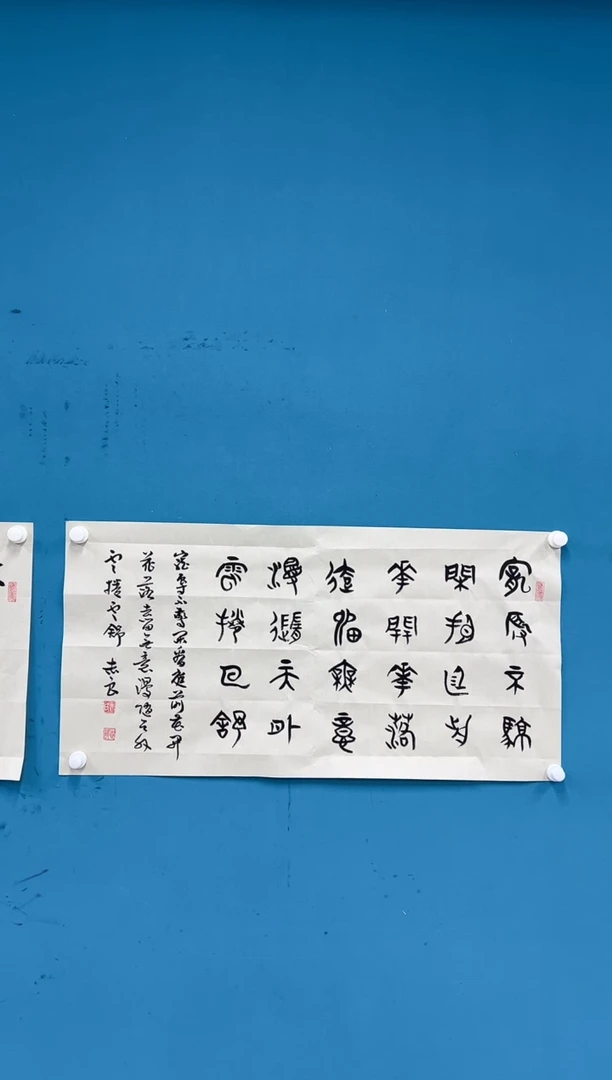 寵辱不驚
閑看庭前
華開華落
去留無意
漫隨天外
雲捲雲舒
寵辱不驚閑看庭前花開
花落去留無意漫隨天外
雲捲雲舒